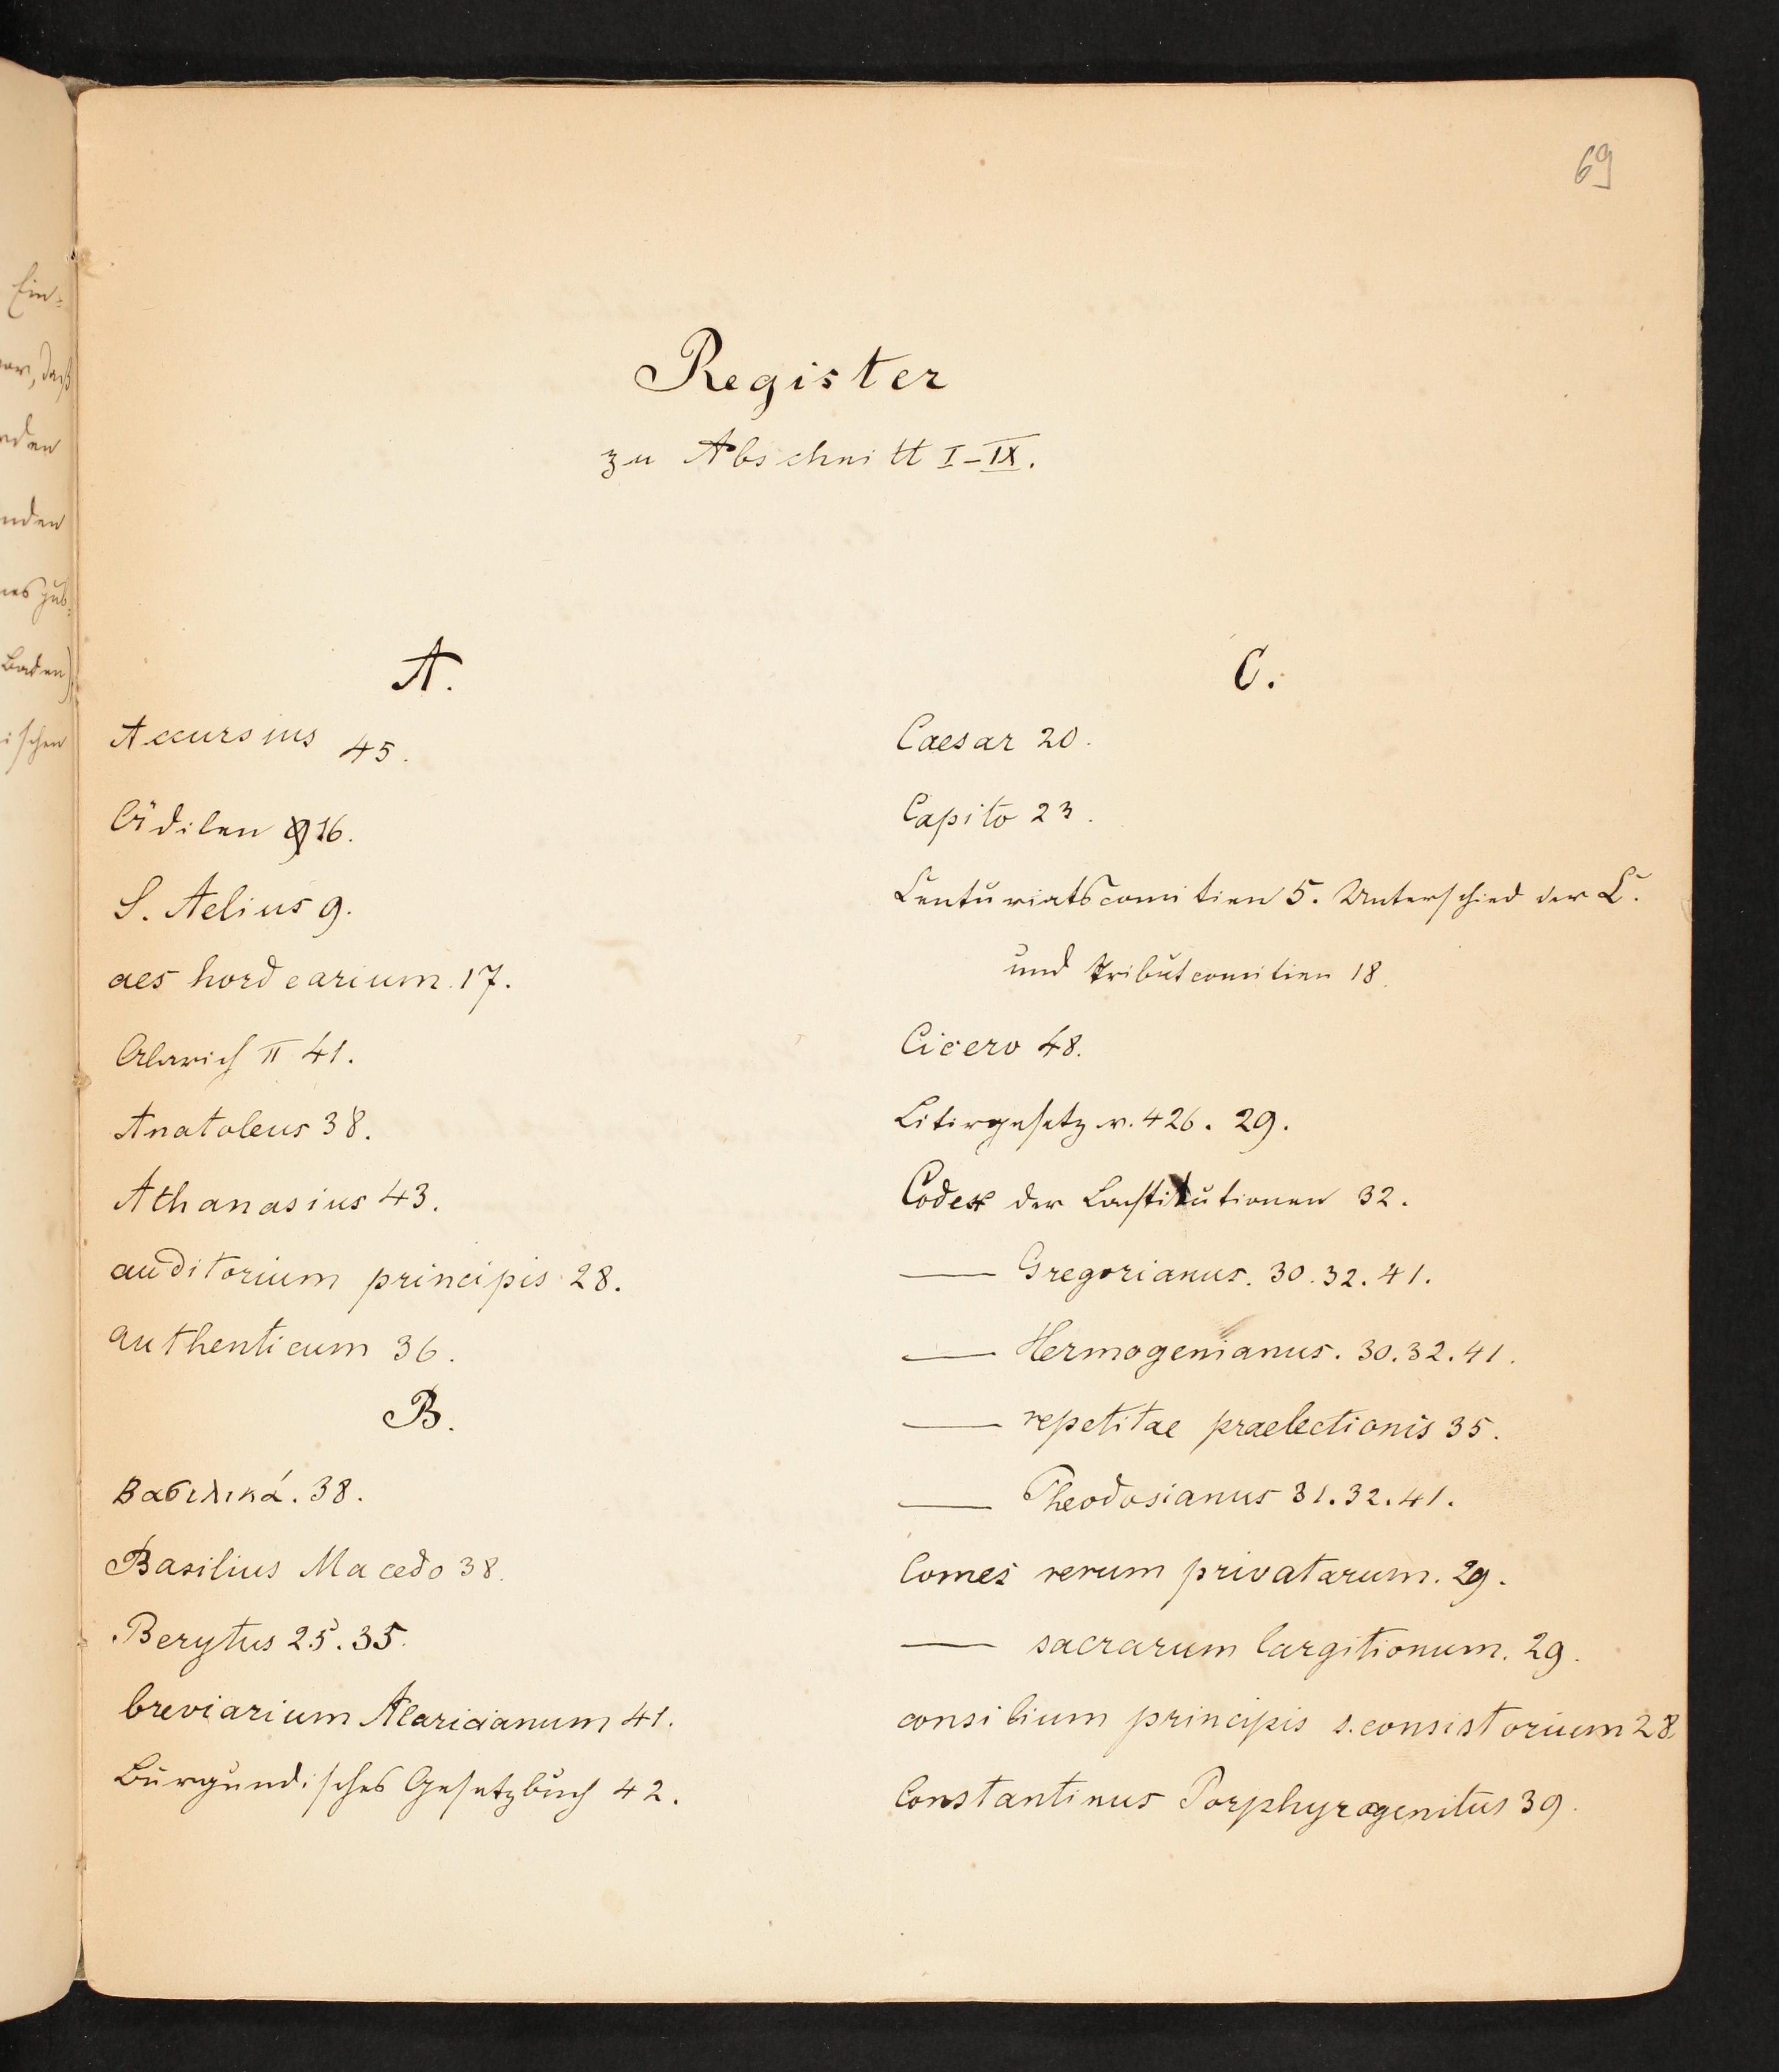 69
Register
zu Abschnitt I-IX.
A.
Accursius 45.
Ädilen 16.
S. Aelius 9.
aes hordearium. 17.
Alarich II 41.
Anatoleus 38.
Athanasius 43.
auditorium principis 28.
authenticum 36.
B.
Βασιλικά. 38.
Basilius Macedo 38.
Berytus 25. 35.
breviarium Alaricianum 41.
Burgundisches Gesetzbuch 42.
C.
Caesar 20.
Capito 23.
Centuriatscomitien 5. Unterschied der C.
und Tributcomitien 18.
Cicero 48.
Citirgesetz v. 426. 29.
Codex der Constitutionen 32.
— Gregorianus. 30. 32. 41.
— Hermogenianus. 30. 32. 41.
— repetitae praelectionis 35.
— Theodosianus 31. 32. 41.
Comes rerum privatarum. 29.
— sacrarum largitionum. 29.
consilium principis s. consistorium 28
Constantinus Porphyrogenitus 39.
Ein-
daß
nden
Baden)
ischen